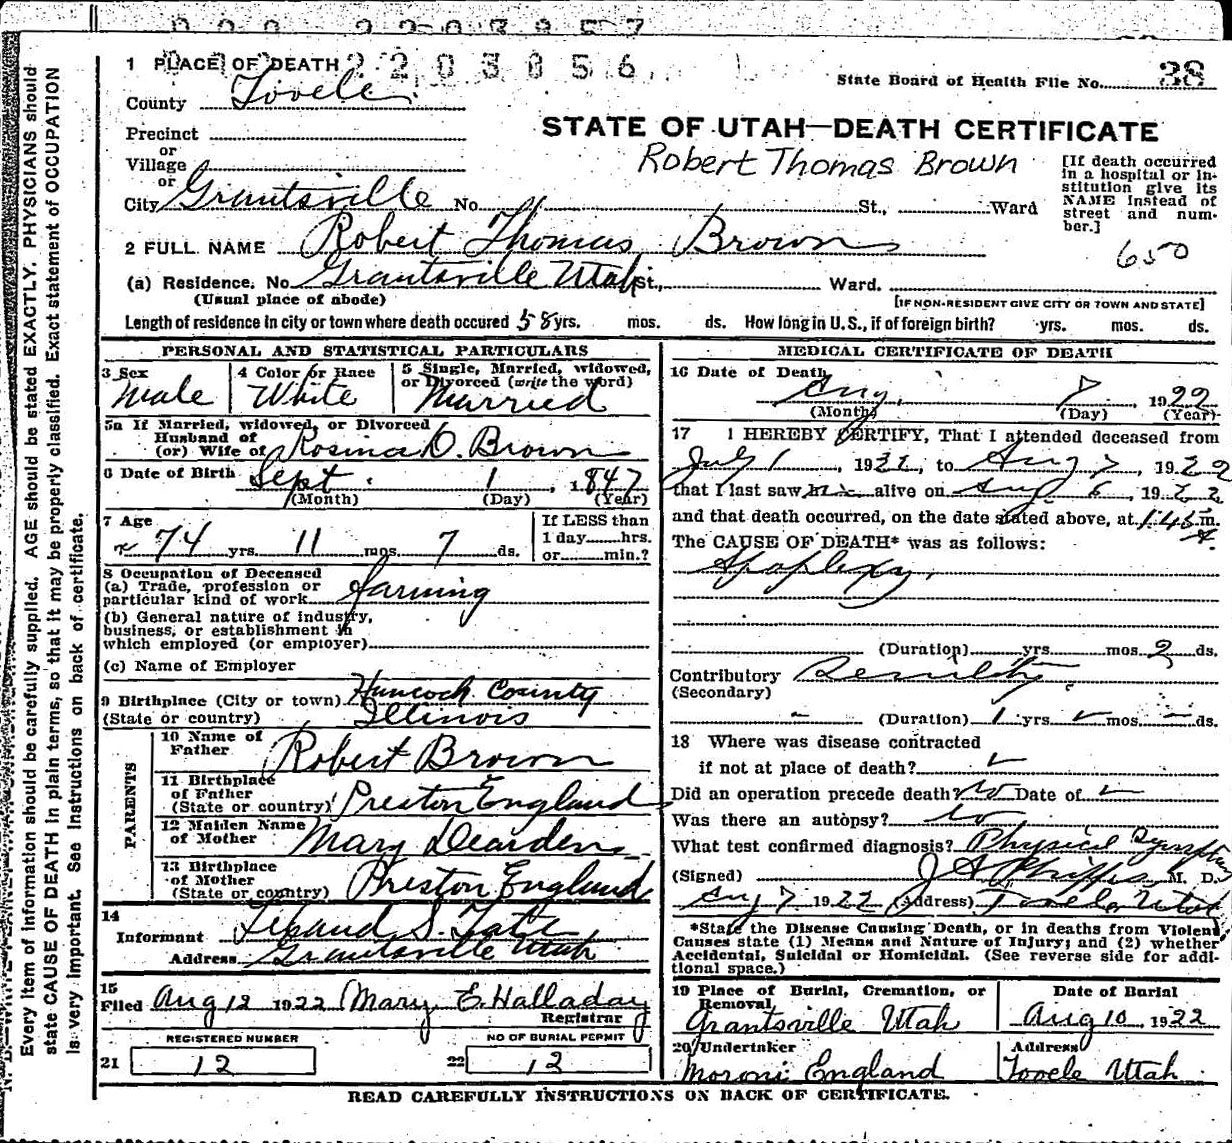 1 PLACE OF DEATH 2203856
State Board of Health File No. 38
County Tooele
STATE OF UTAH—DEATH CERTIFICATE
Precinct
or
Robert Thomas Brown
Village
or
City Grantsville No. St., Ward
[If death occurred in a hospital or institution give its NAME instead of street and number.]
650
2 FULL NAME Robert Thomas Brown
(a) Residence. No Grantsville Utah St., Ward.
(Usual place of abode)
[IF NON-RESIDENT GIVE CITY OR TOWN AND STATE]
Length of residence in city or town where death occured 58 yrs. mos. ds. How long in U.S., if of foreign birth? yrs. mos. ds.
PERSONAL AND STATISTICAL PARTICULARS
3 Sex
Male
4 Color or Race
White
5 Single, Married, widowed,
or Divorced (write the word)
Married
5a If Married, widowed, or Divorced
Husband of
(or) Wife of Rosina O. Brown
6 Date of Birth Sept. 1, 1847
(Month) (Day) (Year)
7 Age
74 yrs 11 mos 7 ds.
If LESS than
1 day hrs.
or min.?
8 Occupation of Deceased
(a) Trade, profession or
particular kind of work farming
(b) General nature of industry,
business, or establishment in
which employed (or employer)
(c) Name of Employer
9 Birthplace (City or town) Hancock County
(State or country) Illinois
PARENTS
10 Name of
Father Robert Brown
11 Birthplace
of Father
(State or country) Preston England
12 Maiden Name
of Mother Mary Dearden
13 Birthplace
of Mother
(State or country) Preston England
14
Informant S.
Address Grantsville Utah
15
Filed Aug 12 1922 Mary E. Halladay
Registrar
REGISTERED NUMBER
21 12
NO OF BURIAL PERMIT
22 12
MEDICAL CERTIFICATE OF DEATH
16 Date of Death
Aug. 7, 1922
(Month) (Day) (Year)
17 I HEREBY CERTIFY, That I attended deceased from
July 1, 1922, to Aug 7, 1922
that I last saw him alive on Aug 6, 1922
and that death occurred, on the date stated above, at 1:45 m.
A.
The CAUSE OF DEATH* was as follows:
Apoplexy.
(Duration) yrs mos 2 ds.
Contributory Senility
(Secondary)
(Duration) 1 yrs mos ds.
18 Where was disease contracted
if not at place of death?
Did an operation precede death? No Date of
Was there an autopsy? No
What test confirmed diagnosis? Physical
(Signed) J A Phipps M. D.
Aug 7 1922 (Address) Tooele Utah
*State the Disease Causing Death, or in deaths from Violent
Causes state (1) Means and Nature of Injury; and (2) whether
Accidental, Suicidal or Homicidal. (See reverse side for addi-
tional space.)
19 Place of Burial, Cremation, or
Removal
Grantsville Utah
Date of Burial
Aug 10 1922
20 Undertaker
Moroni England
Address
Tooele Utah
READ CAREFULLY INSTRUCTIONS ON BACK OF CERTIFICATE.
Every item of information should be carefully supplied. AGE should be stated EXACTLY. PHYSICIANS should
state CAUSE OF DEATH in plain terms, so that it may be properly classified. Exact statement of OCCUPATION
is very important. See instructions on back of certificate.